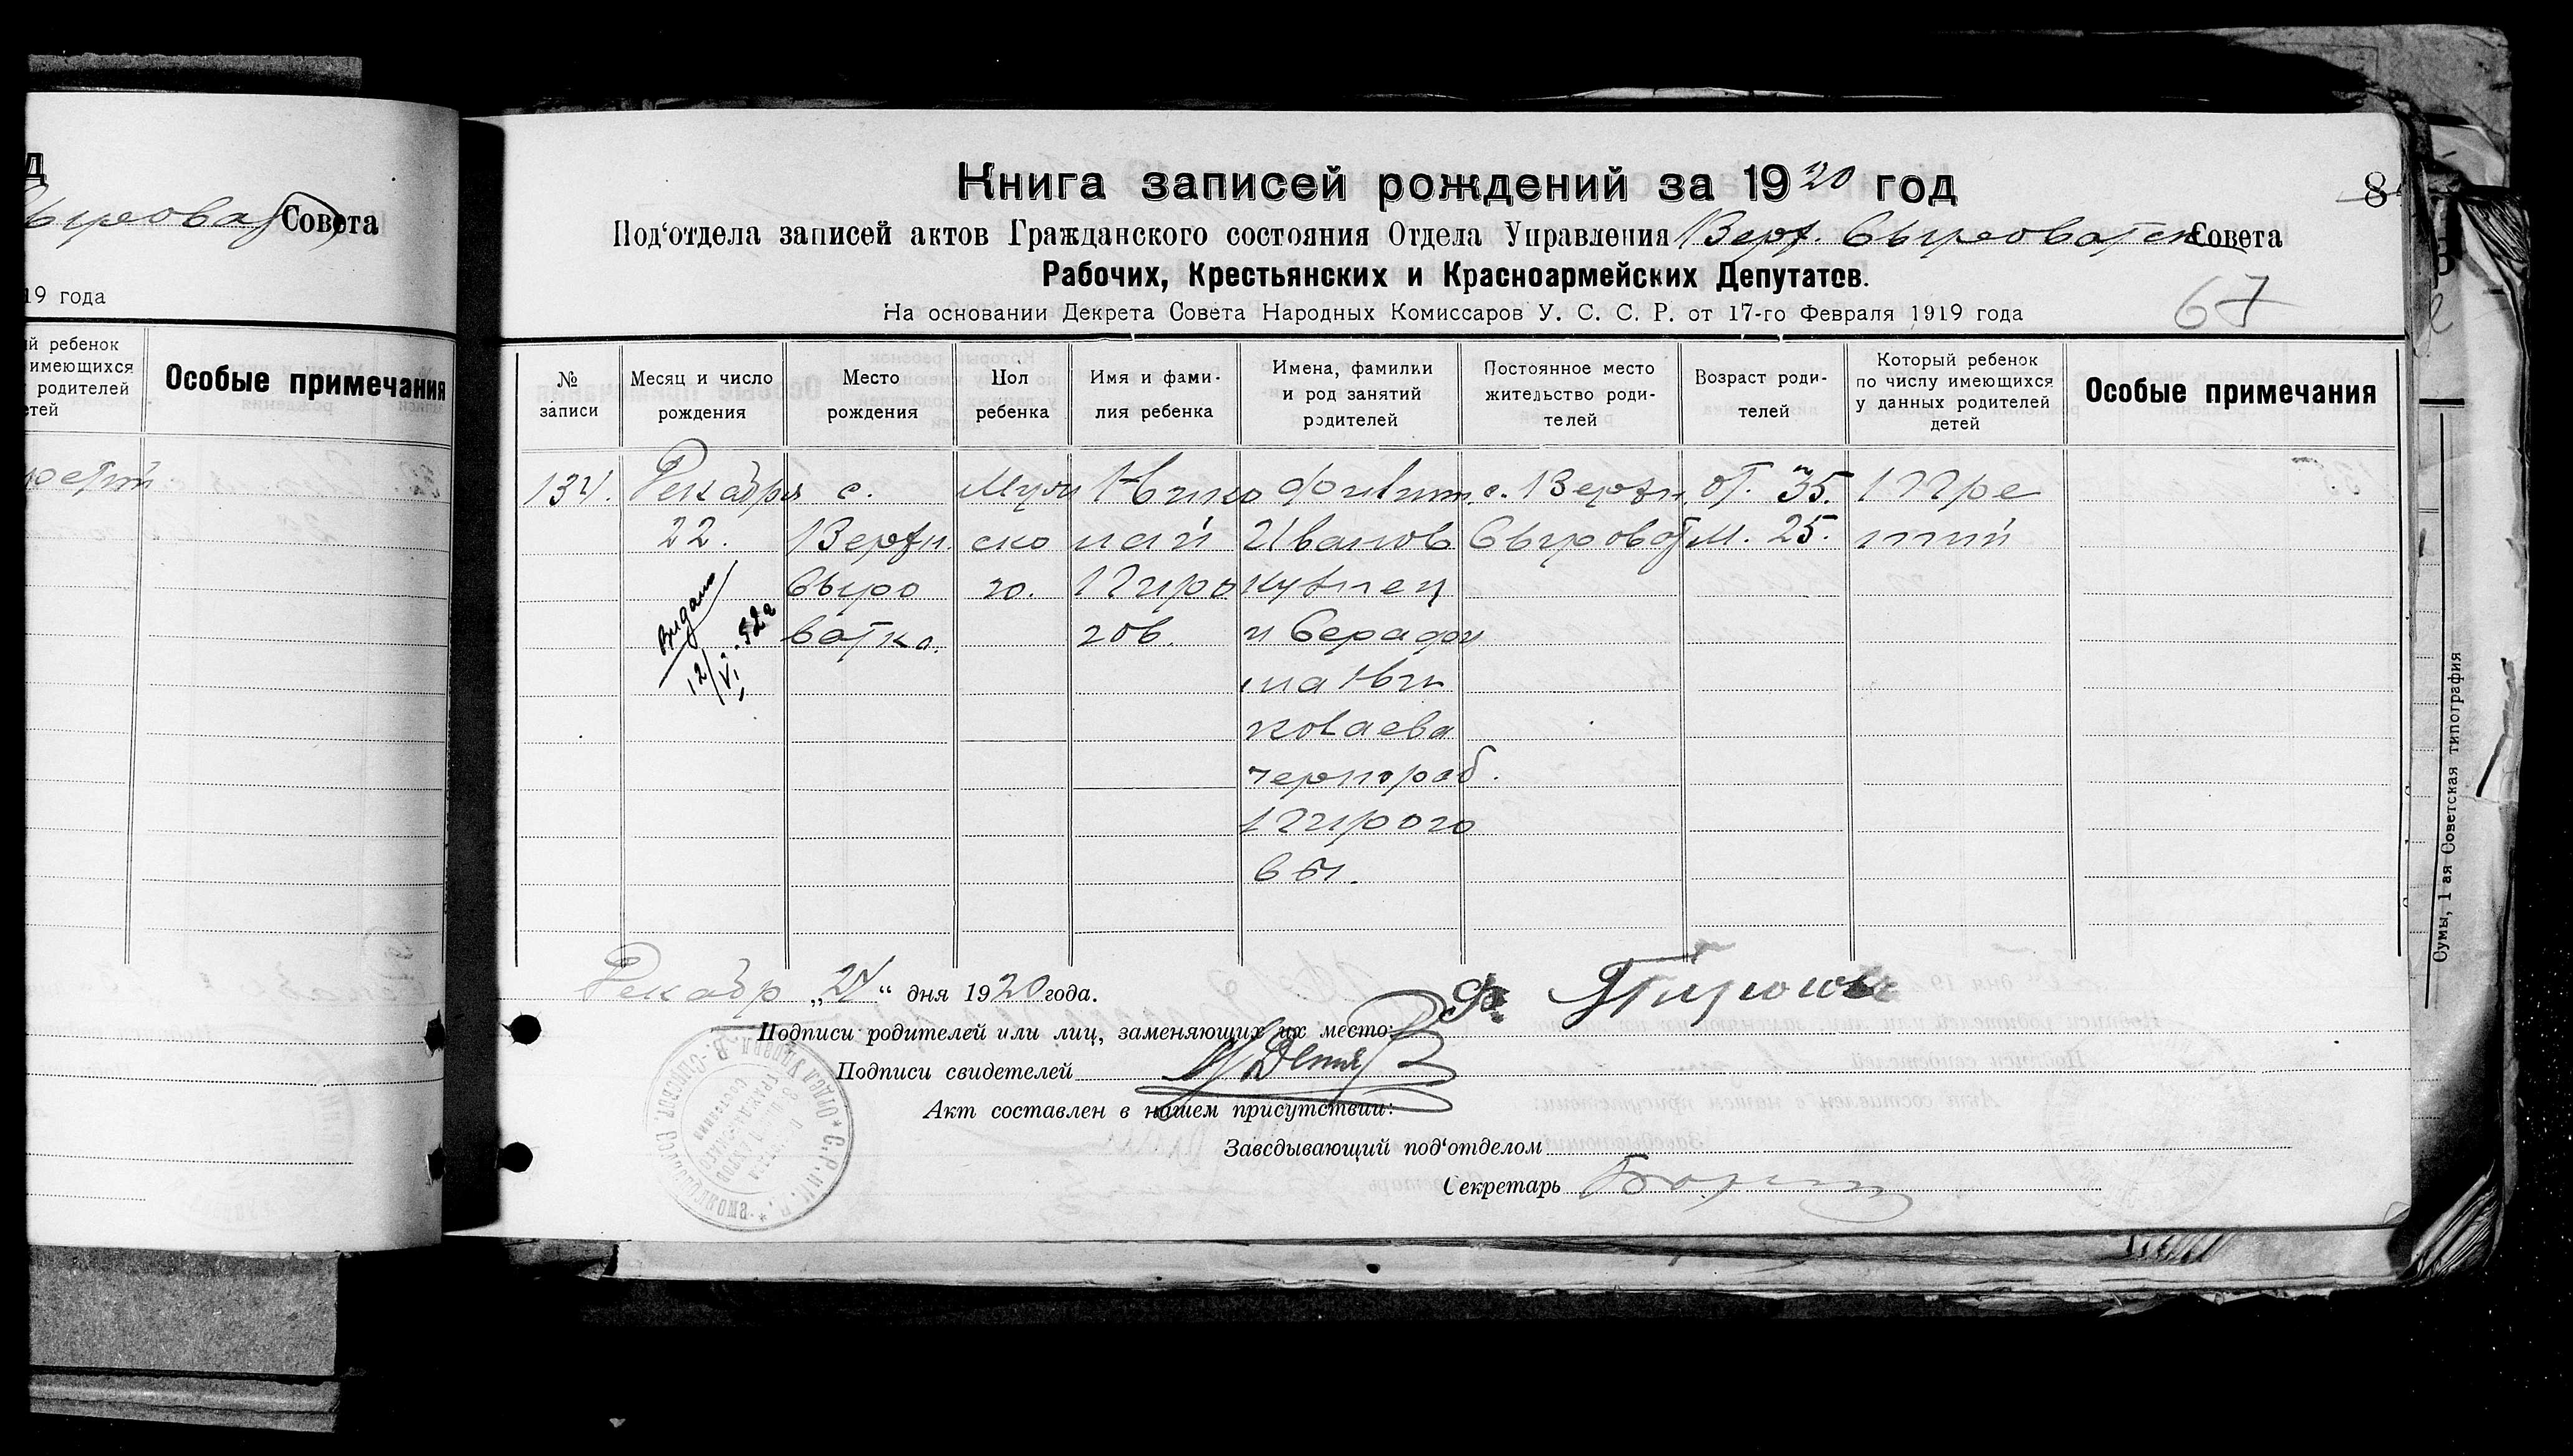 д
Сыроват Совета
19 года
й ребенок
имеющихся
родителей
етей
Особые примечания
Книга записей рождений за 1920 год
8
Под‘отдела записей актов Гражданского состояния Отдела Управления Верх. Сыроватск Совета
Рабочих, Крестьянских и Красноармейских Депутатов.
На основании Декрета Совета Народных Комиссаров У. С. С. Р. от 17-го Февраля 1919 года
67
№ записи
Месяц и число рождения
Место рождения
Пол ребенка
Имя и фами-
лия ребенка
Имена, фамилии
и род занятий
родителей
Постоянное место
жительство роди-
телей
Возраст роди-
телей
Который ребенок
по числу имеющихся
у данных родителей
детей
Особые примечания
134. Декабря с. Муж Нико Филип. с. Верхн. от. 35. Тре
22. Верхн. ско лай Иванов Сыроват м. 25. тий
Сыро го. Пиро
ватка. гов. и Серафи
ма Ни
колаева
чернораб.
Пирого
вы.
Видано
12/VI 52г
Декабр „24“ дня 1920 года.
Подписи родителей или лиц, заменяющих их место: Ф Пирогов
Подписи свидетелей
Акт составлен в нашем присутствии:
Заведывающий под‘отделом
Секретарь
Сумы, 1 ая Советская типография